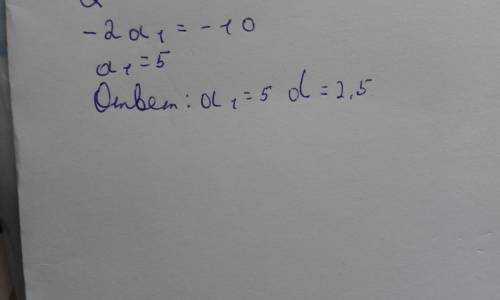 -2a₁ = -10
a₁ = 5
Ответ: a₁ = 5 d = 2,5